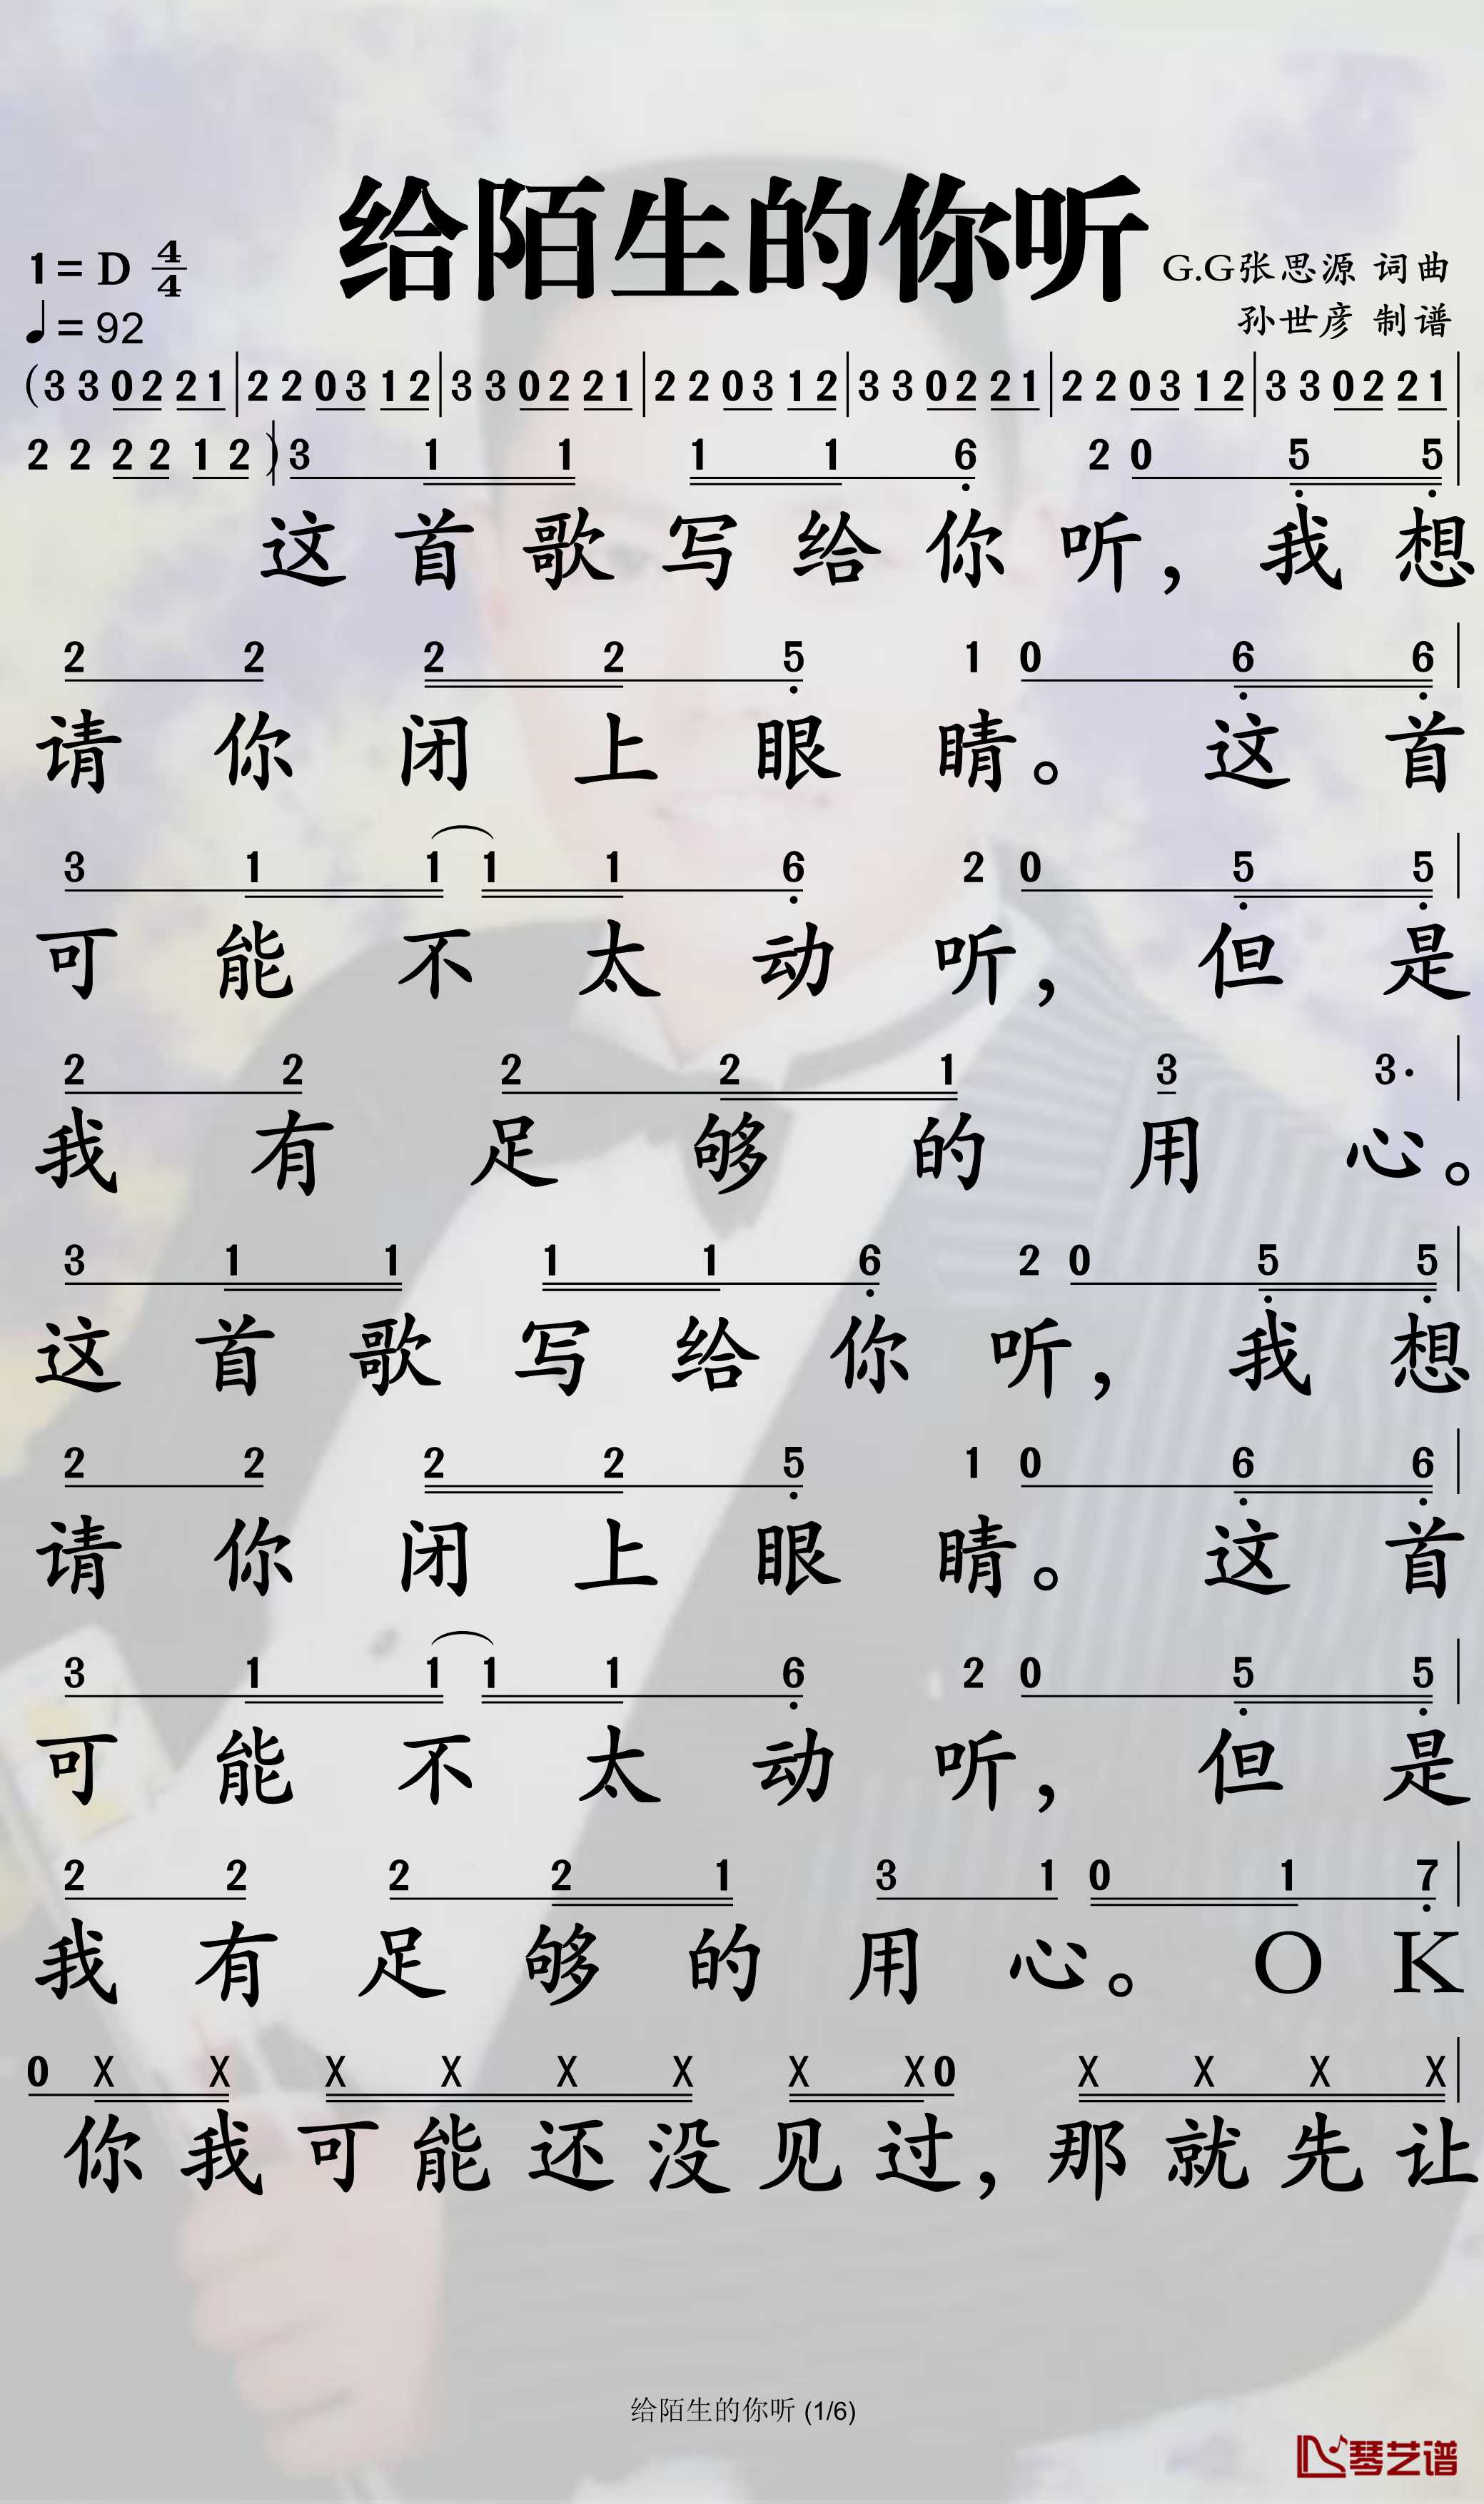 给陌生的你听
1=D 4/4
♩=92
G.G张思源 词曲
孙世彦 制谱
(3 3 0 2 2 1 | 2 2 0 3 1 2 | 3 3 0 2 2 1 | 2 2 0 3 1 2 | 3 3 0 2 2 1 | 2 2 0 3 1 2 | 3 3 0 2 2 1 |
2 2 2 2 1 2 ) | 3 1 1 1 1 6 2 0 5 5 |
这首歌写给你听，我想
2 2 2 2 5 1 0 6 6 |
请你闭上眼睛。这首
3 1 1 1 1 6 2 0 5 5 |
可能不太动听，但是
2 2 2 2 1 3 3· |
我有足够的用心。
3 1 1 1 1 6 2 0 5 5 |
这首歌写给你听，我想
2 2 2 2 5 1 0 6 6 |
请你闭上眼睛。这首
3 1 1 1 1 6 2 0 5 5 |
可能不太动听，但是
2 2 2 2 1 3 1 0 1 7 |
我有足够的用心。O K
0 X X X X X X X X 0 X X X X |
你我可能还没见过，那就先让
给陌生的你听 (1/6)
琴艺谱